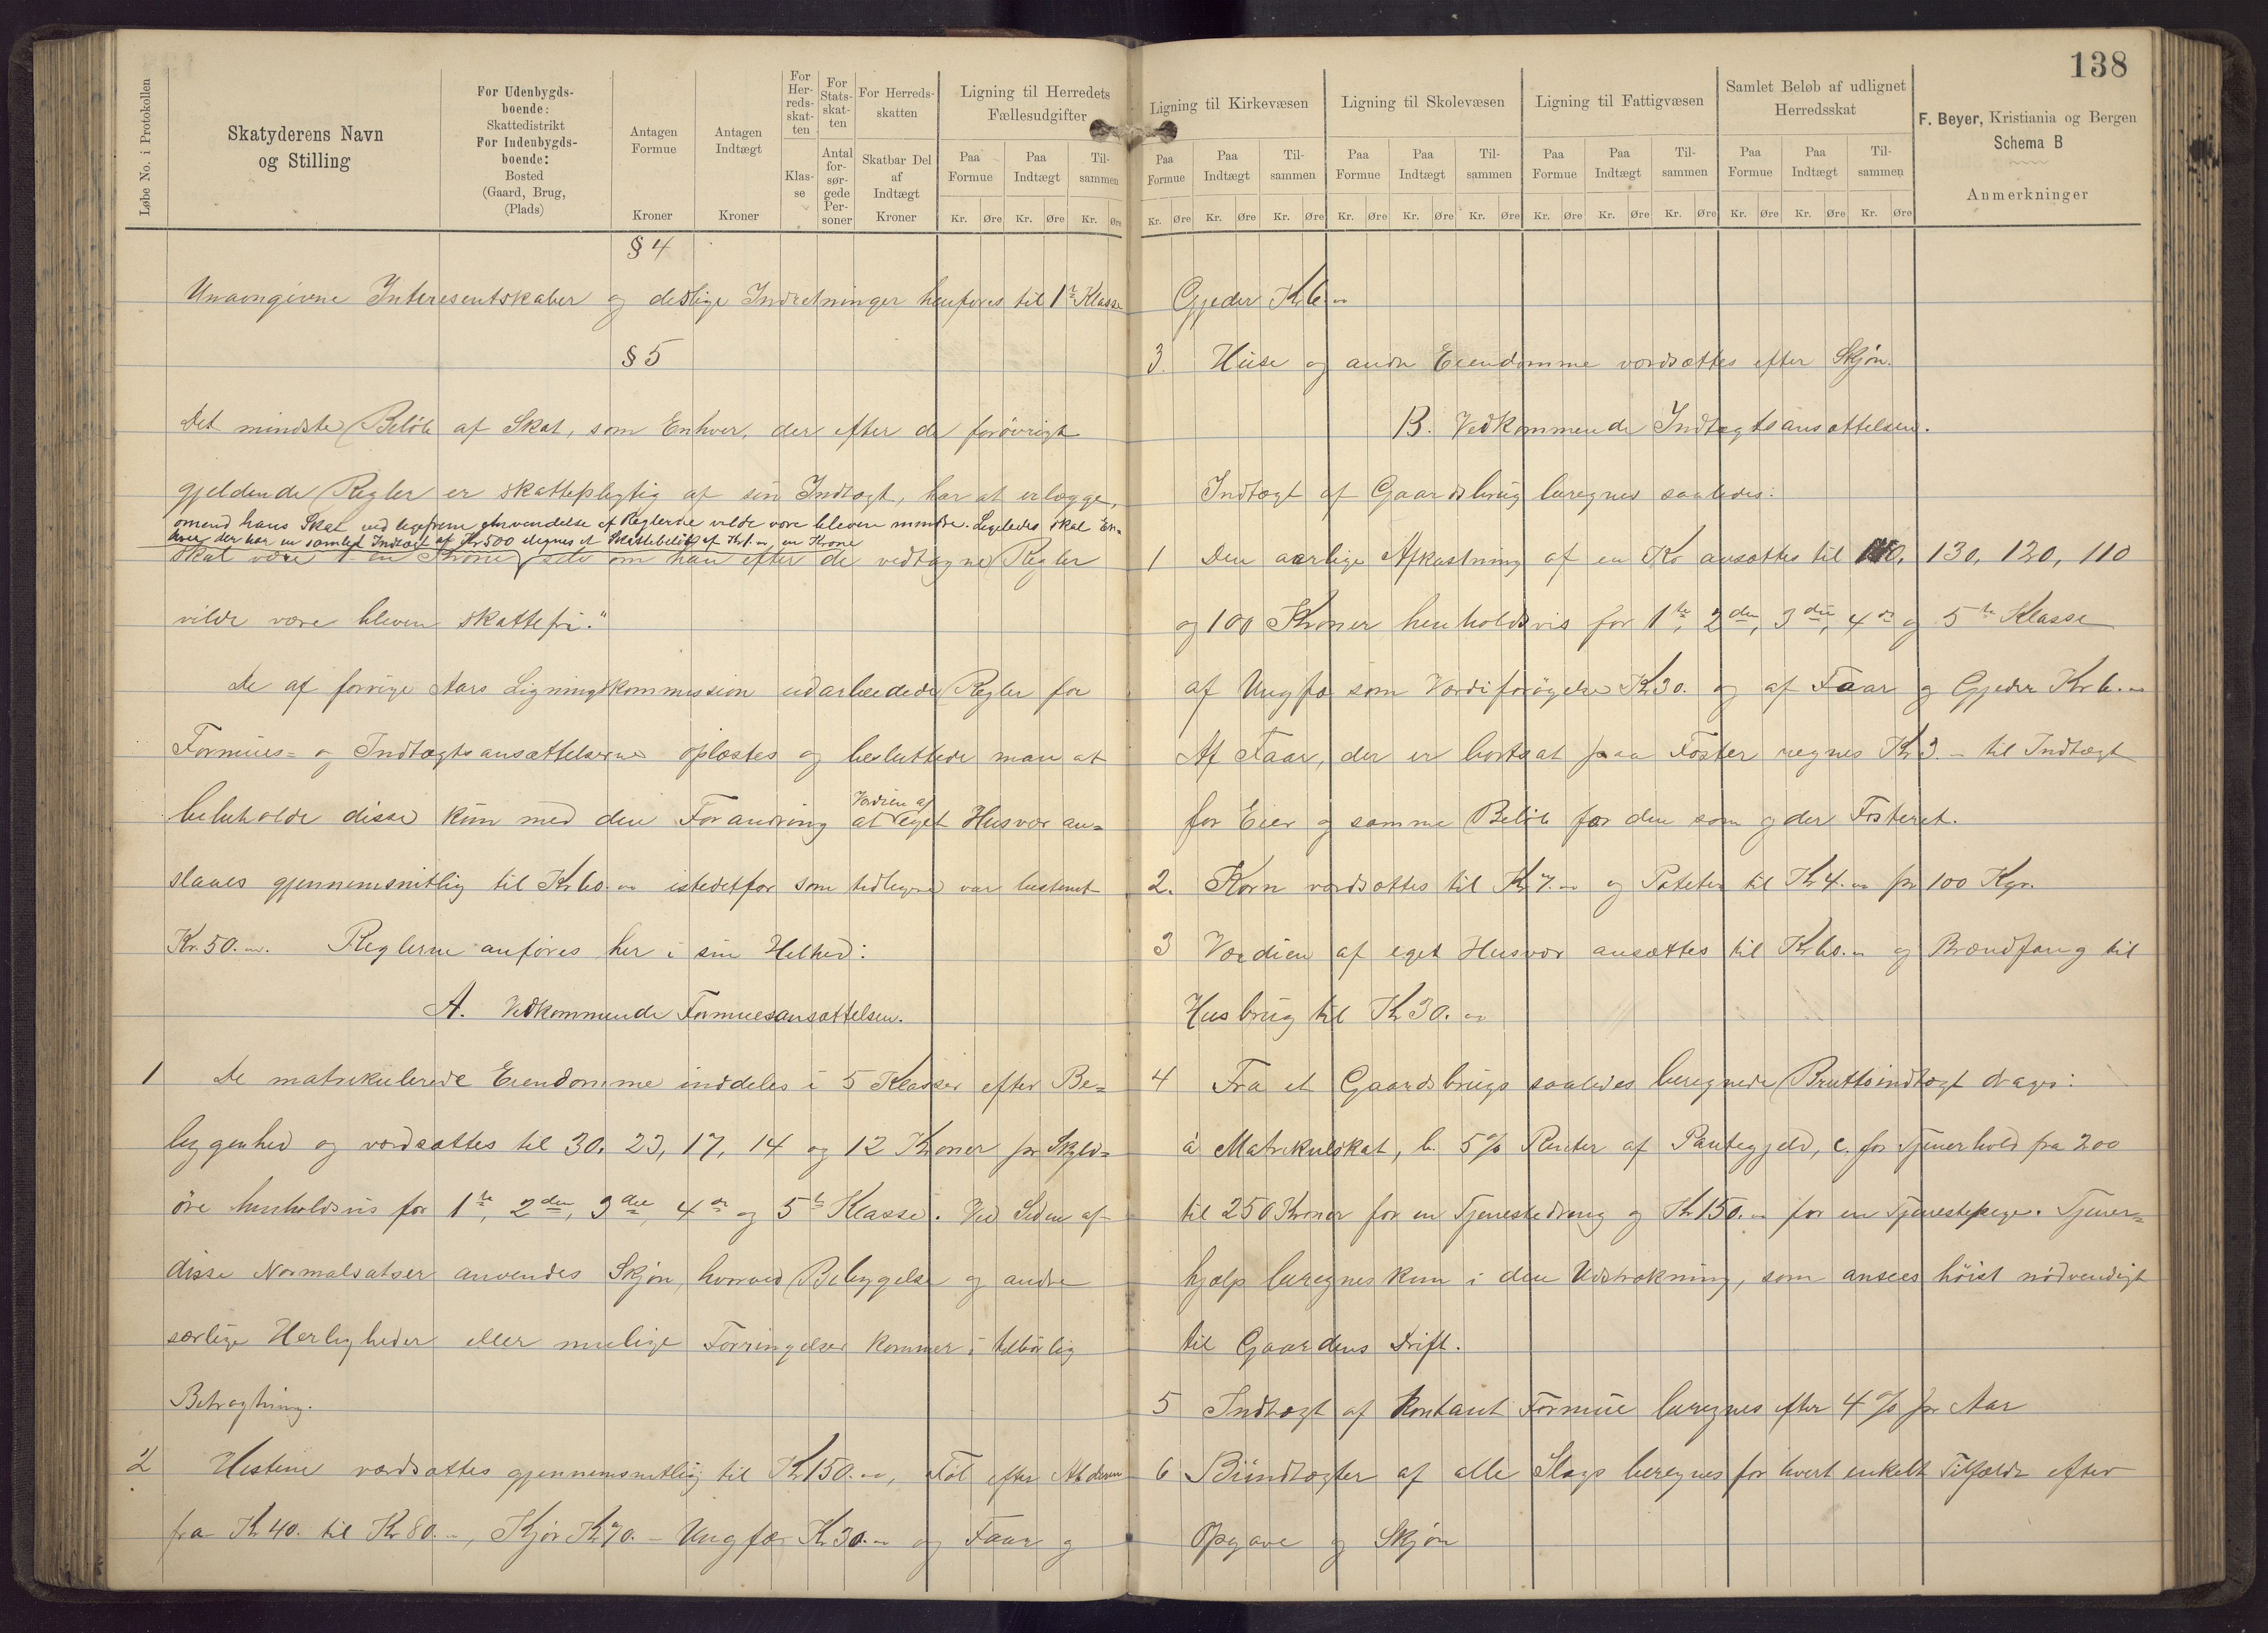 138
Løbe No. i Protokollen
Skatyderens Navn
og Stilling
For Udenbygds-
boende:
Skattedistrikt
For Indenbygds-
boende:
Bosted
(Gaard, Brug,
(Plads)
Antagen
Formue
Kroner
Antagen
Indtægt
Kroner
For
Her-
reds-
skat-
ten
Klas-
se
For
Stats-
skat-
ten
Antal
for-
sør-
gede
Per-
soner
For Herreds-
skatten
Skatbar Del
af
Indtægt
Kroner
Ligning til Herredets
Fællesudgifter
Paa
Formue
Paa
Indtægt
Til-
sammen
Kr. Øre Kr. Øre Kr. Øre
§ 4
Unavngivne Interesentskaber og deslige Indretninger henføres til 1ste Klasse
§ 5
Det mindste Beløb af Skat, som Enhver, der efter de forøvrigt
gjeldende Regler er skattepligtig af sin Indtægt, har at erlægge,
omend hans Skat ved ligefrem Anvendelse af Reglerne vilde være bleven mindre. Ligeledes skal En-
hver der har en samlet Indtægt af Kr 500 ilignes et Skattebeløb af Kr 1.- en Krone
skal være 1 en Krone selv om han efter de vedtagne Regler
vilde være bleven skattefri."
De af forrige Aars Ligningskommission udarbeidede Regler for
Formues- og Indtægtsansættelserne oplæstes og besluttede man at
bibeholde disse kun med den Forandring at Værdien af eget Husvær an-
slaaes gjennemsnitlig til Kr 60.- istedetfor som tidligere var bestemt
Kr. 50.-. Reglerne anføres her i sin Helhed:
A. Vedkommende Formuesansættelsen.
1 De matrikulerede Eiendomme inddeles i 5 Klasser efter Be-
liggenhed og værdsættes til 30, 23, 17, 14 og 12 Kroner pr Skyld-
øre henholdsvis for 1ste, 2den, 3die, 4de og 5te Klasse. Ved Siden af
disse Normalsatser anvendes Skjøn, hvorved Bebyggelse og andre
særlige Herligheder eller mulige Forringelser kommer i tilbørlig
Betragtning.
2 Hestene værdsættes gjennemsnitlig til Kr 150.-, Føl efter Alderen
fra Kr 40. til Kr 80.-, Kjør Kr 70.- Ungfæ Kr 30.- og Faar og
Ligning til Kirkevæsen
Paa
Formue
Paa
Indtægt
Til-
sammen
Kr. Øre Kr. Øre Kr. Øre
Ligning til Skolevæsen
Paa
Formue
Paa
Indtægt
Til-
sammen
Kr. Øre Kr. Øre Kr. Øre
Ligning til Fattigvæsen
Paa
Formue
Paa
Indtægt
Til-
sammen
Kr. Øre Kr. Øre Kr. Øre
Samlet Beløb af udlignet
Herredsskat
Paa
Formue
Paa
Indtægt
Til-
sammen
Kr. Øre Kr. Øre Kr. Øre
F. Beyer, Kristiania og Bergen
Schema B
Anmerkninger
Gjeder Kr 6.-
3. Huse og andre Eiendomme værdsættes efter Skjøn.
B. Vedkommende Indtægtsansættelsen.
Indtægt af Gaardsbrug beregnes saaledes:
1 Den aarlige Afkastning af en Ko ansættes til 140, 130, 120, 110
og 100 Kroner henholdsvis for 1ste, 2den, 3die, 4de og 5te Klasse
af Ungfæ som Værdiforøgelse Kr 30. og af Faar og Gjeder Kr 6.-
Af Faar, der er bortsat paa Foster regnes Kr 3.- til Indtægt
for Eier og samme Beløb for den som gder Fosteret.
2. Korn værdsættes til Kr 7.- og Poteter til Kr 4.- pr 100 Kgr.
3 Værdien af eget Husvær ansættes til Kr 60.- og Brændfang til
Husbrug til Kr 30.-
4 Fra et Gaardsbrugs saaledes beregnede Bruttoindtægt drages:
a Matrikulskat, b. 5% Renter af Pantegjeld, c. for Tjenerhold fra 200
til 250 Kroner for en Tjenestedreng og Kr 150.- for en Tjenestepige. Tjener-
hjælp beregnes kun i den Udstrækning, som ansees høist nødvendigt
til Gaardens Drift.
5 Indtægt af kontant Formue beregnes efter 4% pr Aar
6 Biindtægter af alle Slags beregnes for hvert enkelt Tilfælde efter
Opgave og Skjøn